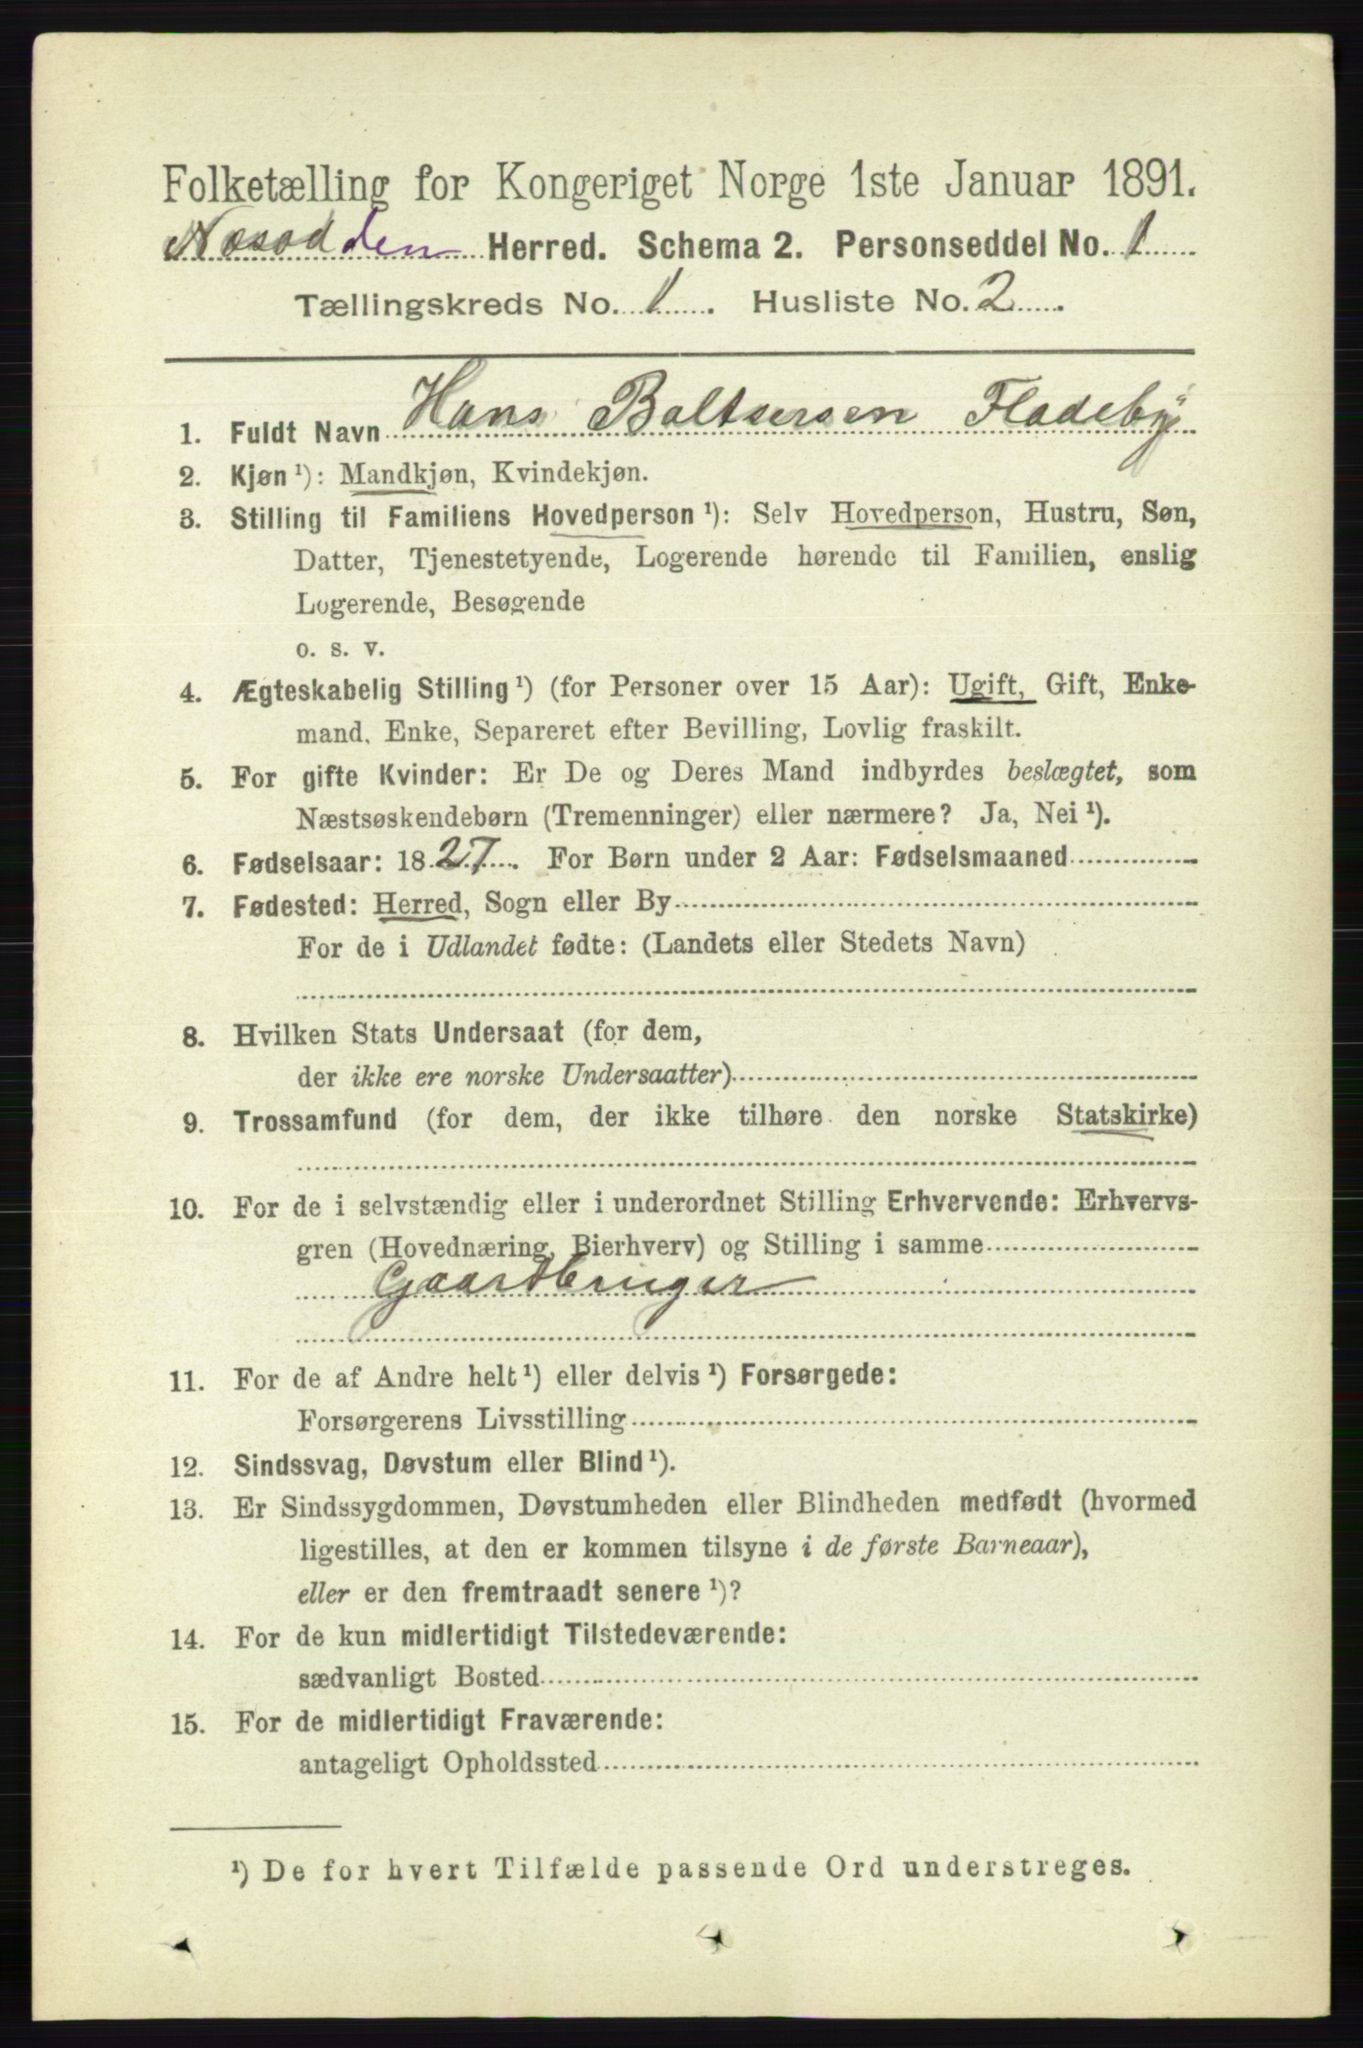 Folketælling for Kongeriget Norge 1ste Januar 1891.
Næsodden Herred. Schema 2. Personseddel No. 1
Tællingskreds No. 1. Husliste No. 2.
1. Fuldt Navn Hans Baltsersen Fladeby
2. Kjøn ¹): Mandkjøn, Kvindekjøn.
3. Stilling til Familiens Hovedperson ¹): Selv Hovedperson, Hustru, Søn,
Datter, Tjenestetyende, Logerende hørende til Familien, enslig
Logerende, Besøgende
o. s. v.
4. Ægteskabelig Stilling ¹) (for Personer over 15 Aar): Ugift, Gift, Enke-
mand, Enke, Separeret efter Bevilling, Lovlig fraskilt.
5. For gifte Kvinder: Er De og Deres Mand indbyrdes beslægtet, som
Næstsøskendebørn (Tremenninger) eller nærmere? Ja, Nei ¹).
6. Fødselsaar: 1827. For Børn under 2 Aar: Fødselsmaaned
7. Fødested: Herred, Sogn eller By
For de i Udlandet fødte: (Landets eller Stedets Navn)
8. Hvilken Stats Undersaat (for dem,
der ikke ere norske Undersaatter)
9. Trossamfund (for dem, der ikke tilhøre den norske Statskirke)
10. For de i selvstændig eller i underordnet Stilling Erhvervende: Erhvervs-
gren (Hovednæring, Bierhverv) og Stilling i samme
Gaardbruger
11. For de af Andre helt ¹) eller delvis ¹) Forsørgede:
Forsørgerens Livsstilling
12. Sindssvag, Døvstum eller Blind ¹).
13. Er Sindssygdommen, Døvstumheden eller Blindheden medfødt (hvormed
ligestilles, at den er kommen tilsyne i de første Barneaar),
eller er den fremtraadt senere ¹)?
14. For de kun midlertidigt Tilstedeværende:
sædvanligt Bosted
15. For de midlertidigt Fraværende:
antageligt Opholdssted
¹) De for hvert Tilfælde passende Ord understreges.